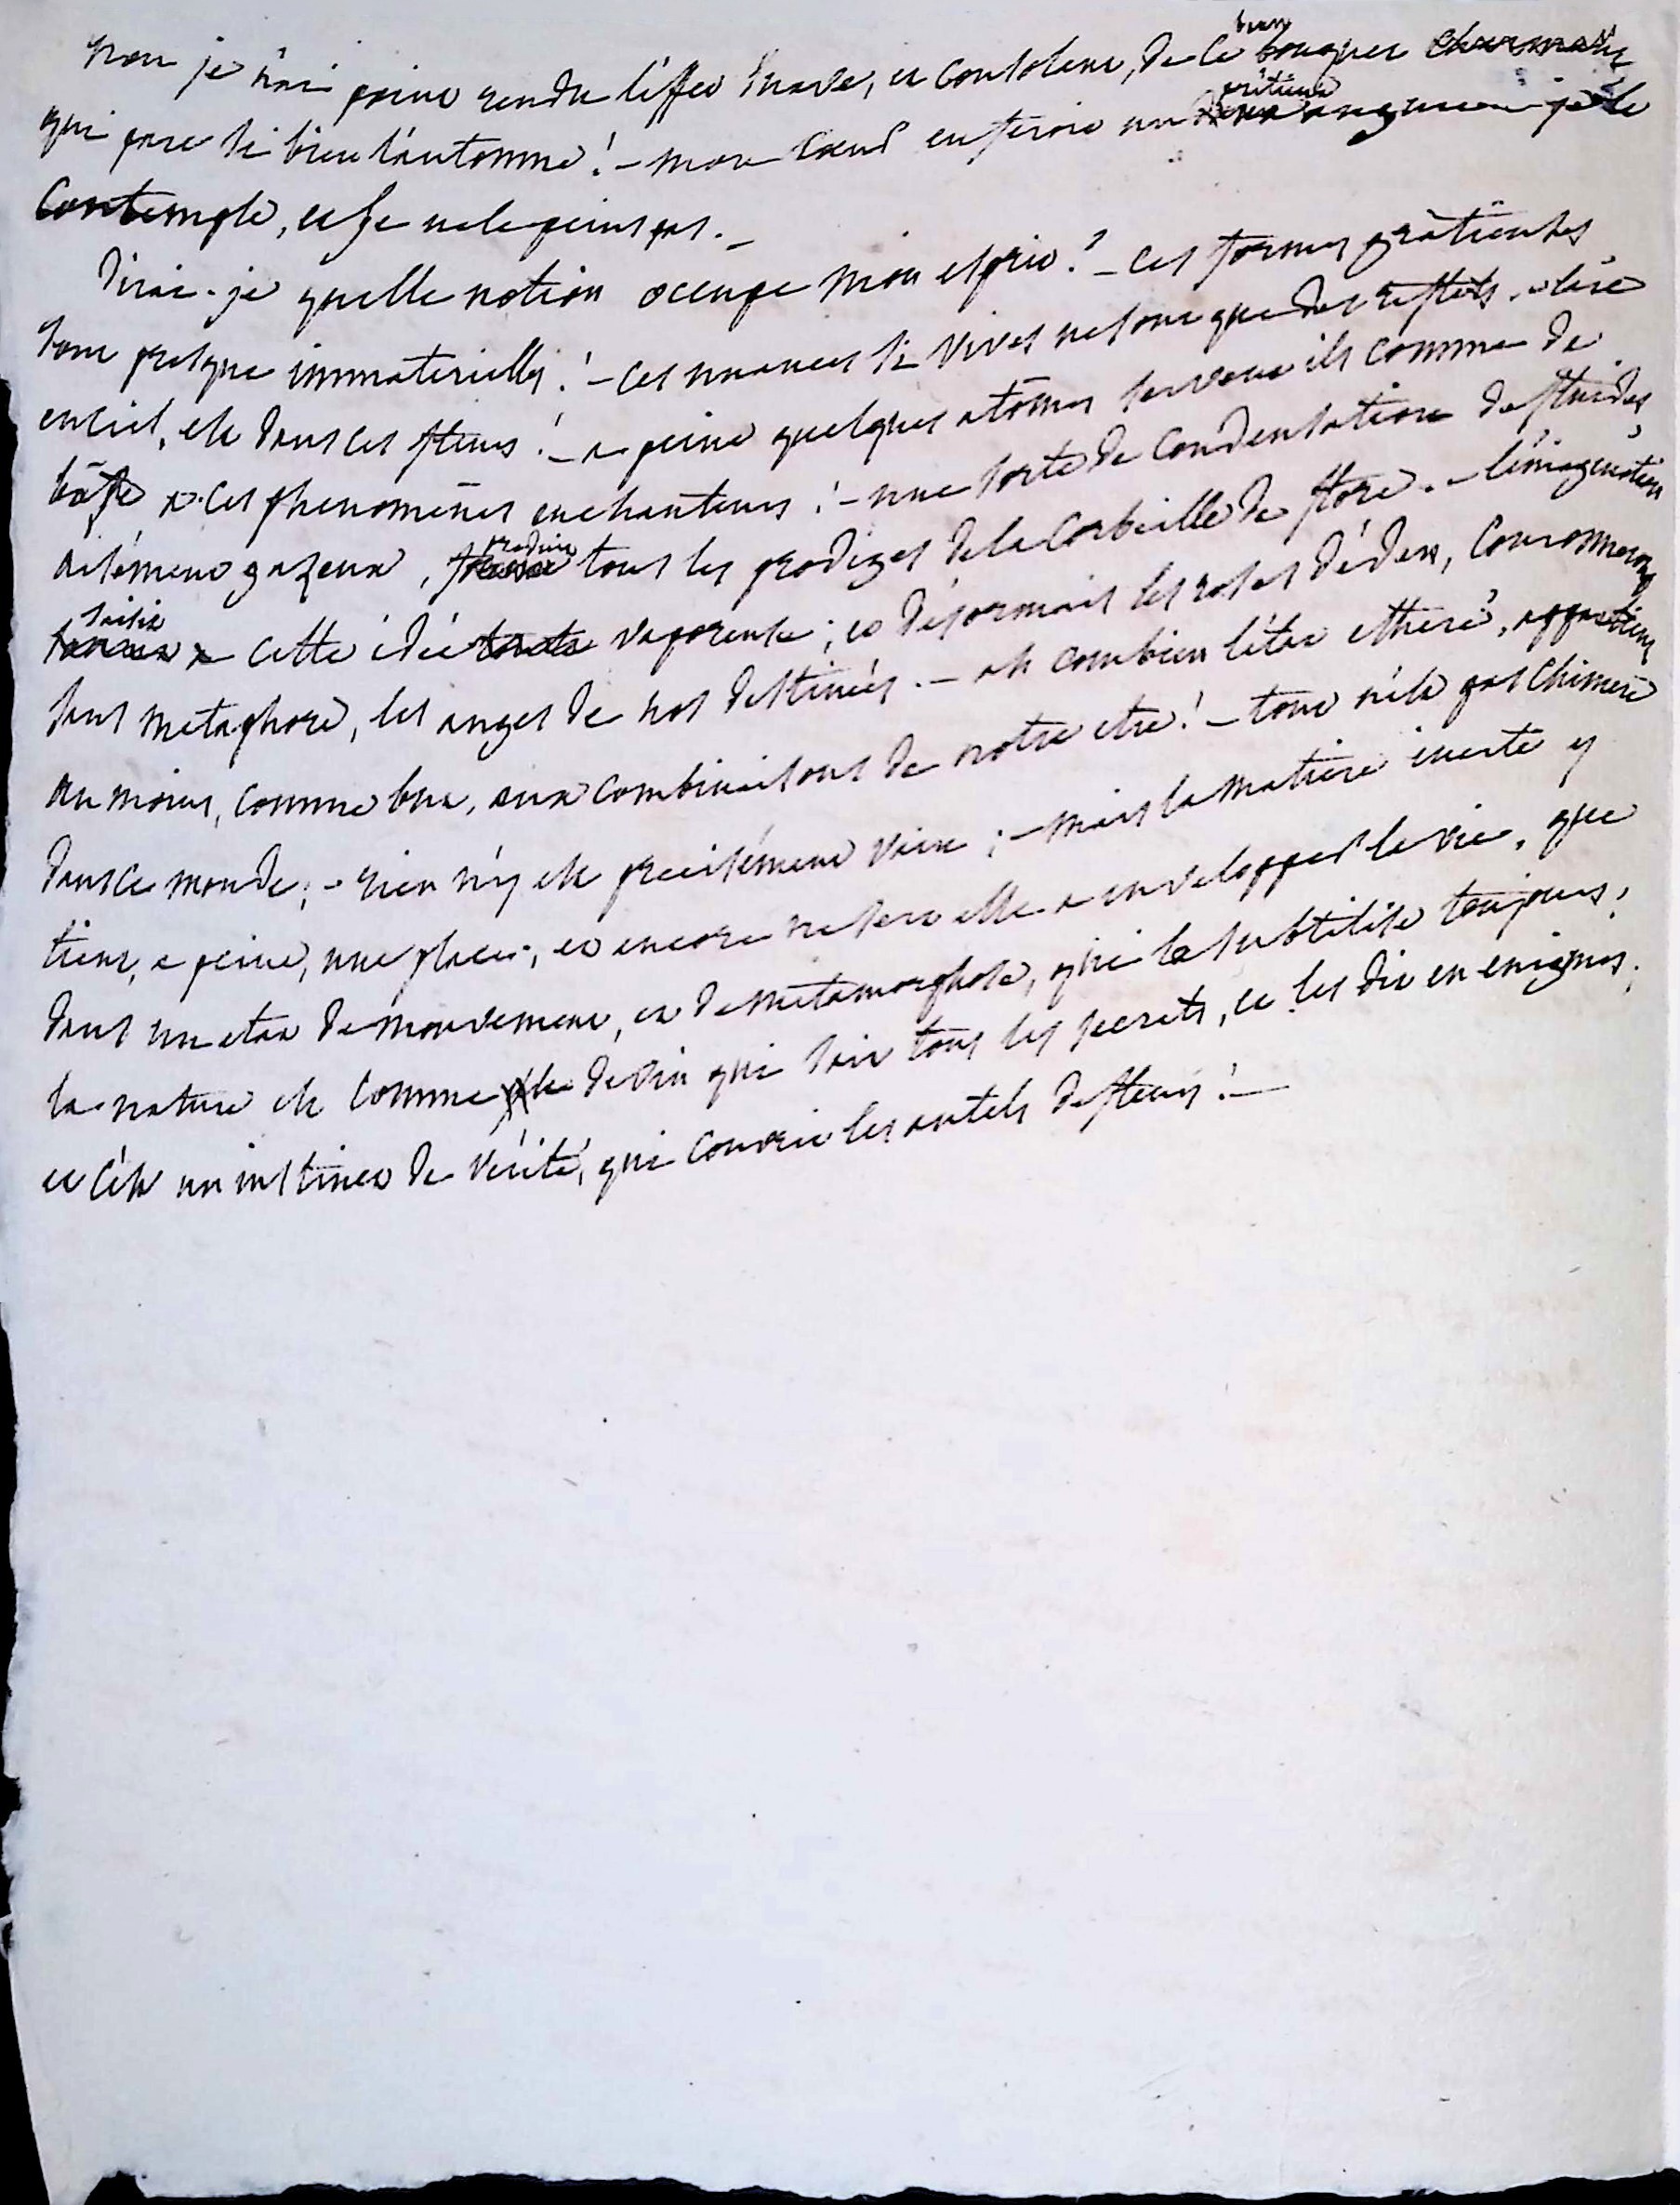 non je n'ai point rendu l'effet suave, et consolant, de ce beau bouquet charmant
qui pare si bien l'automne! – mon coeur en feroit un jê le
contemple, et je ne le peins pas. –
Dirai-je quelle notion occupe mon esprit? – ces formes gratieuses
sont presque immaterielles! – ces nuances si vives ne sont que des reflets. – l'arc
en ciel, est dans ces fleurs! – a peine quelques atômes servent ils comme de
bâse a ces phenomènes enchanteurs! – une sorte de condensation de fluides,
aisément gazeux, produit tous les prodiges de la corbeille de flore. – l'imagination
saisit cette idée toute vaporeuse; et désormais les roses d'éden, couronneront
sans metaphore, les anges de nos destinées. – ah combien l'état etheré, appartient
au moins, comme but, aux combinaisons de notre etre! – tout n'est pas chimere
dans ce monde; – rien n'y est precisément vain; – mais la matière inerte y
tient, a peine, une place; et encore ne sert elle a envelopper la vie, que
dans un etat de mouvement, et de metamorphose, qui la subtilise toujours;
la nature est comme le devin qui sait tous les secrets, et les dit en enigmes;
et c'est un instinct de vérité, qui couvrit les autels de fleurs! –